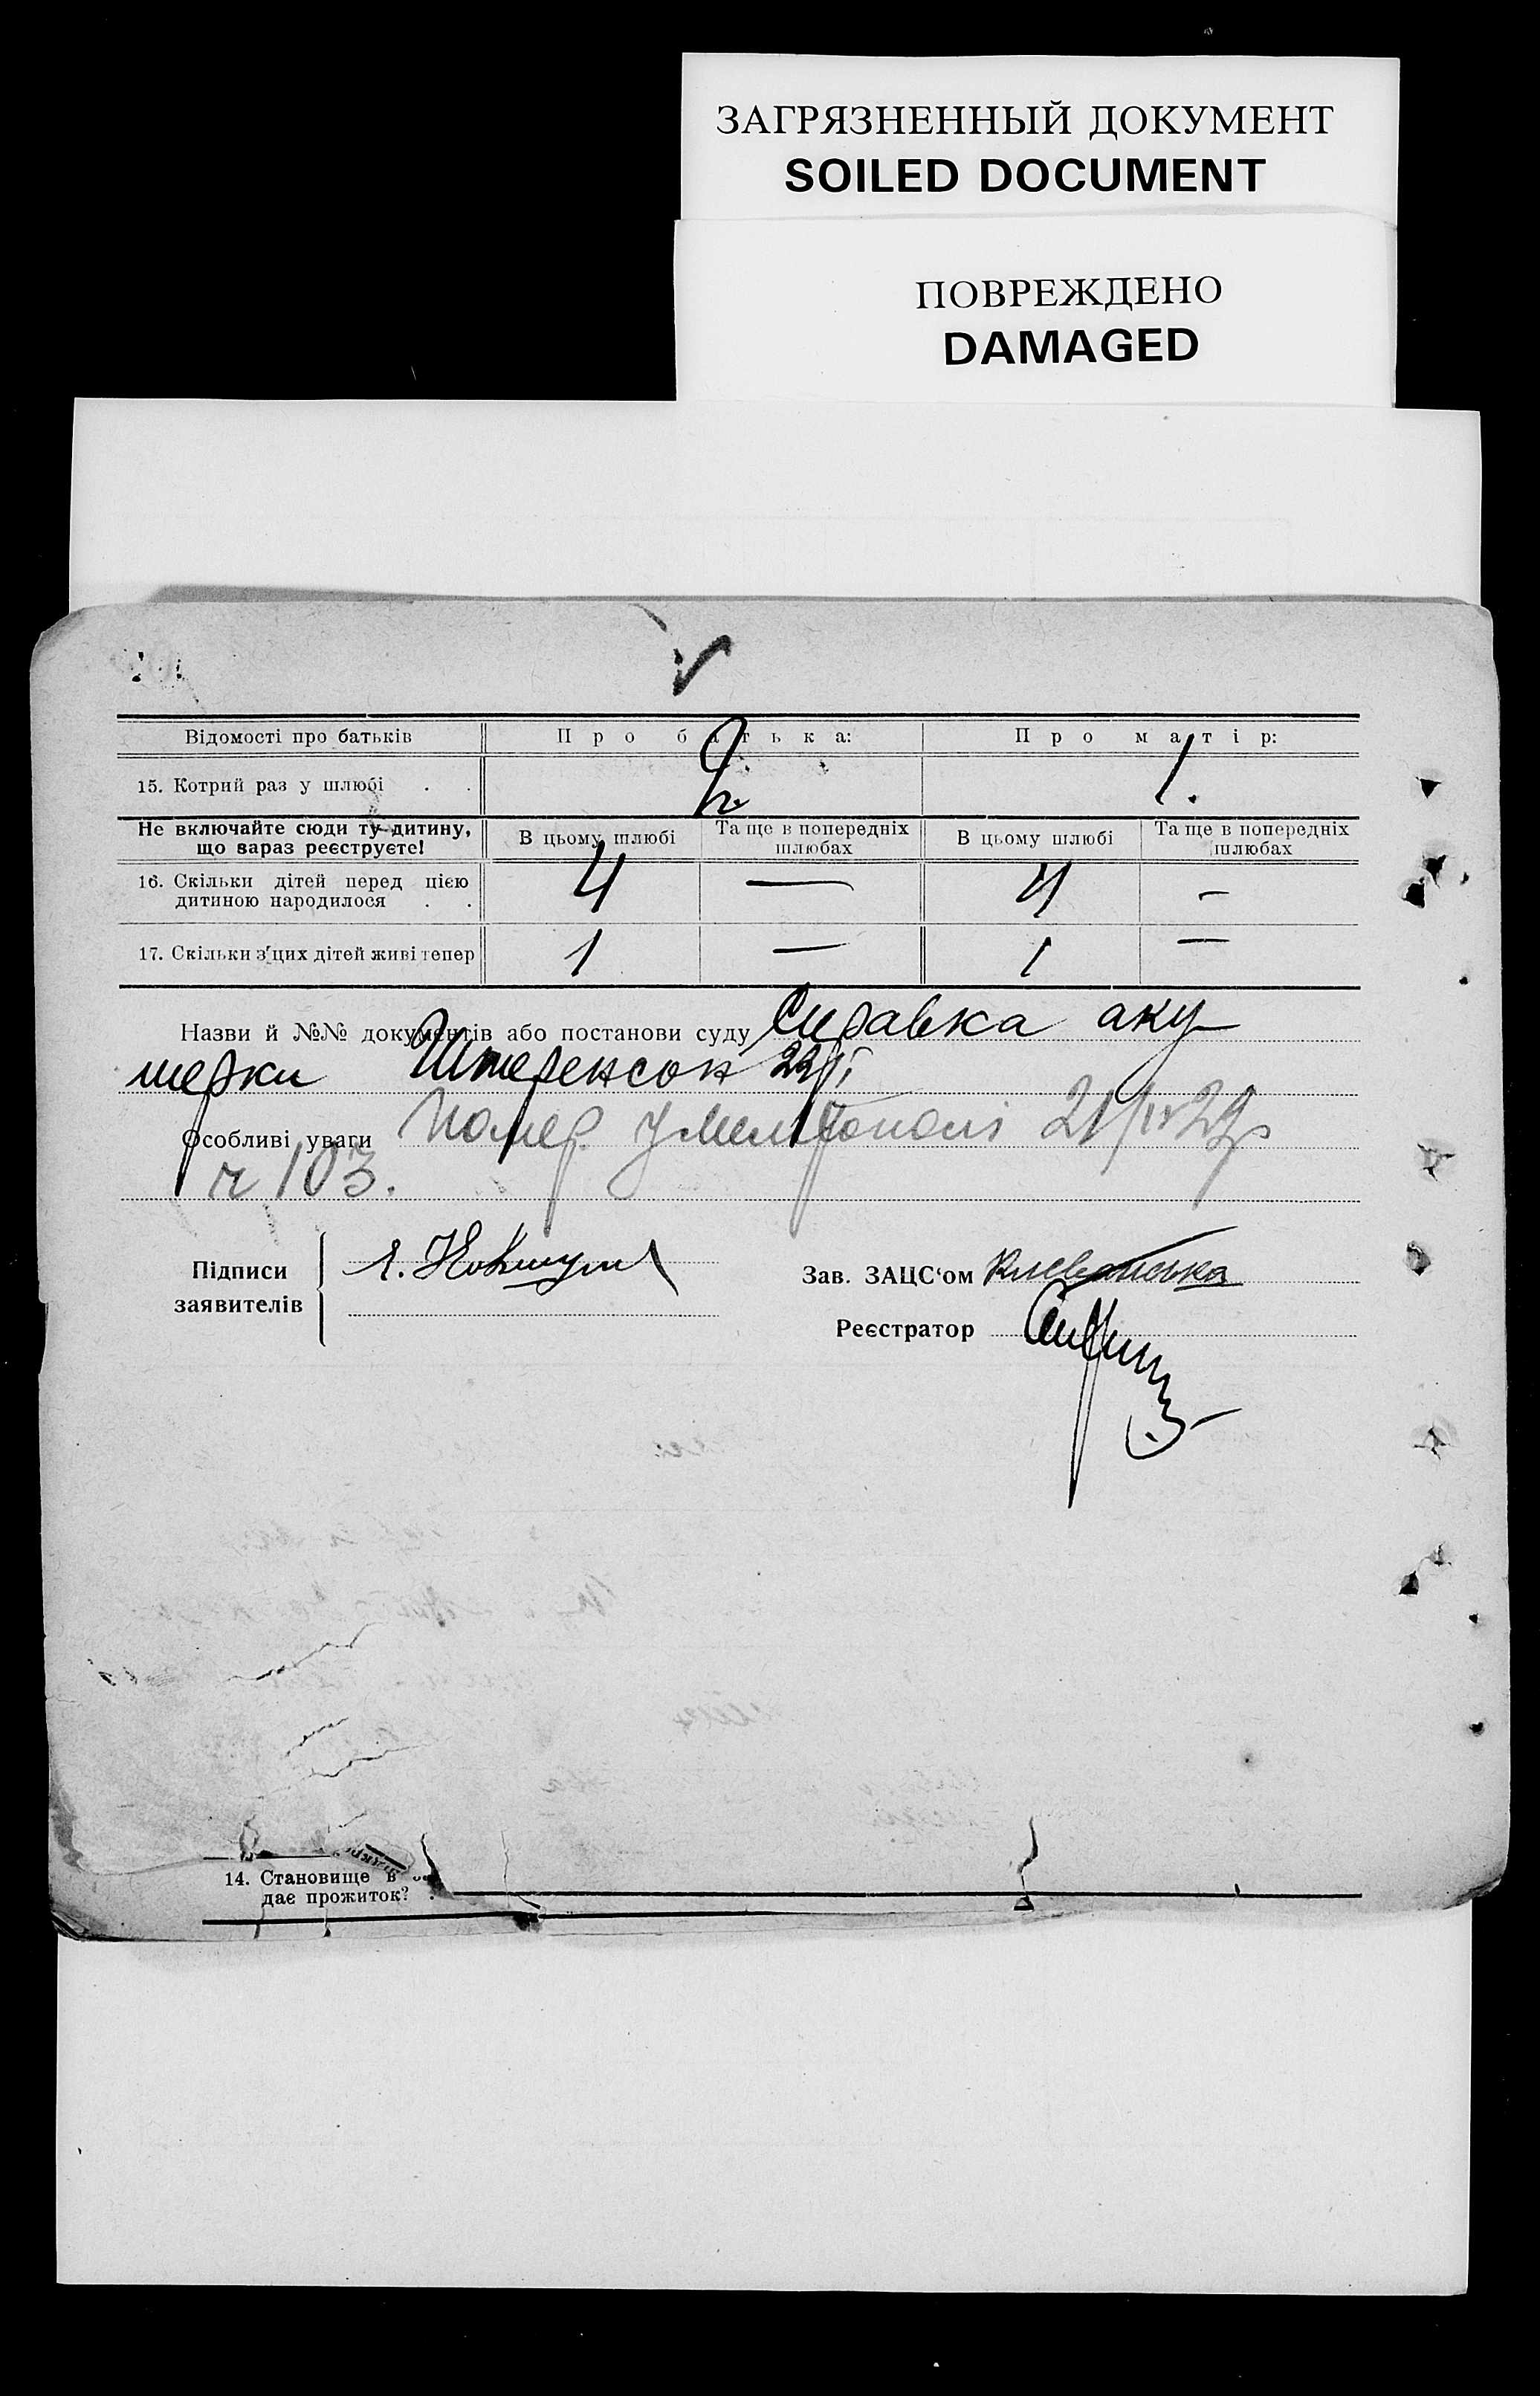 ЗАГРЯЗНЕННЫЙ ДОКУМЕНТ
SOILED DOCUMENT
ПОВРЕЖДЕНО
DAMAGED
Відомості про батьків Про батька: Про матір:
15. Котрий раз у шлюбі . . 2. 1.
Не включайте сюди ту дитину, що вараз реєструєте! В цьому шлюбі Та ще в попередніх шлюбах В цьому шлюбі Та ще в попередніх шлюбах
16. Скільки дітей перед цією
дитиною народилося . . 4 — 4 —
17. Скільки з'цих дітей живі тепер 1 — 1 —
Назви й №№ документів або постанови суду Справка аку
шерки Штеренсон
Особливі уваги Помер у Мелітополі 21/IV 29р
ч 103.
Підписи
заявителів
Зав. ЗАЦС‘ом
Реєстратор
14. Становище в
дає прожиток? .